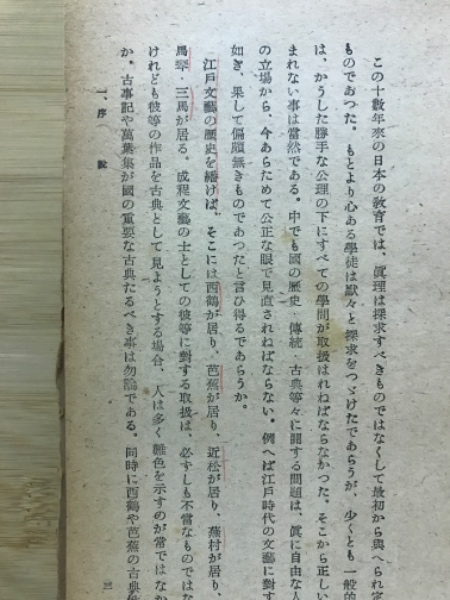 この十數年來の日本の教育では、眞理は探求すべきものではなくして最初から與へられ定
ものであつた。もとより心ある學徒は默々と探求をつゞけたであらうが、少くとも一般的
は、かうした勝手な公理の下にすべての學問が取扱はれねばならなかつた。そこから正しい
まれない事は當然である。中でも國の歷史・傳統・古典等々に關する問題は、眞に自由な人
の立場から、今あらためて公正な眼で見直されねばならない。例へば江戸時代の文藝に對す
如き、果して偏頗無きものであつたと言ひ得るであらうか。
江戸文藝の歷史を繙けば、そこには西鶴が居り、芭蕉が居り、近松が居り、蕪村が居り、
馬琴・三馬が居る。成程文藝の士としての彼等に對する取扱は、必ずしも不當なものではな
けれども彼等の作品を古典として見ようとする場合、人は多く難色を示すのが常ではなか
か。古事記や萬葉集が國の重要な古典たるべき事は勿論である。同時に西鶴や芭蕉の古典
一、序說
三